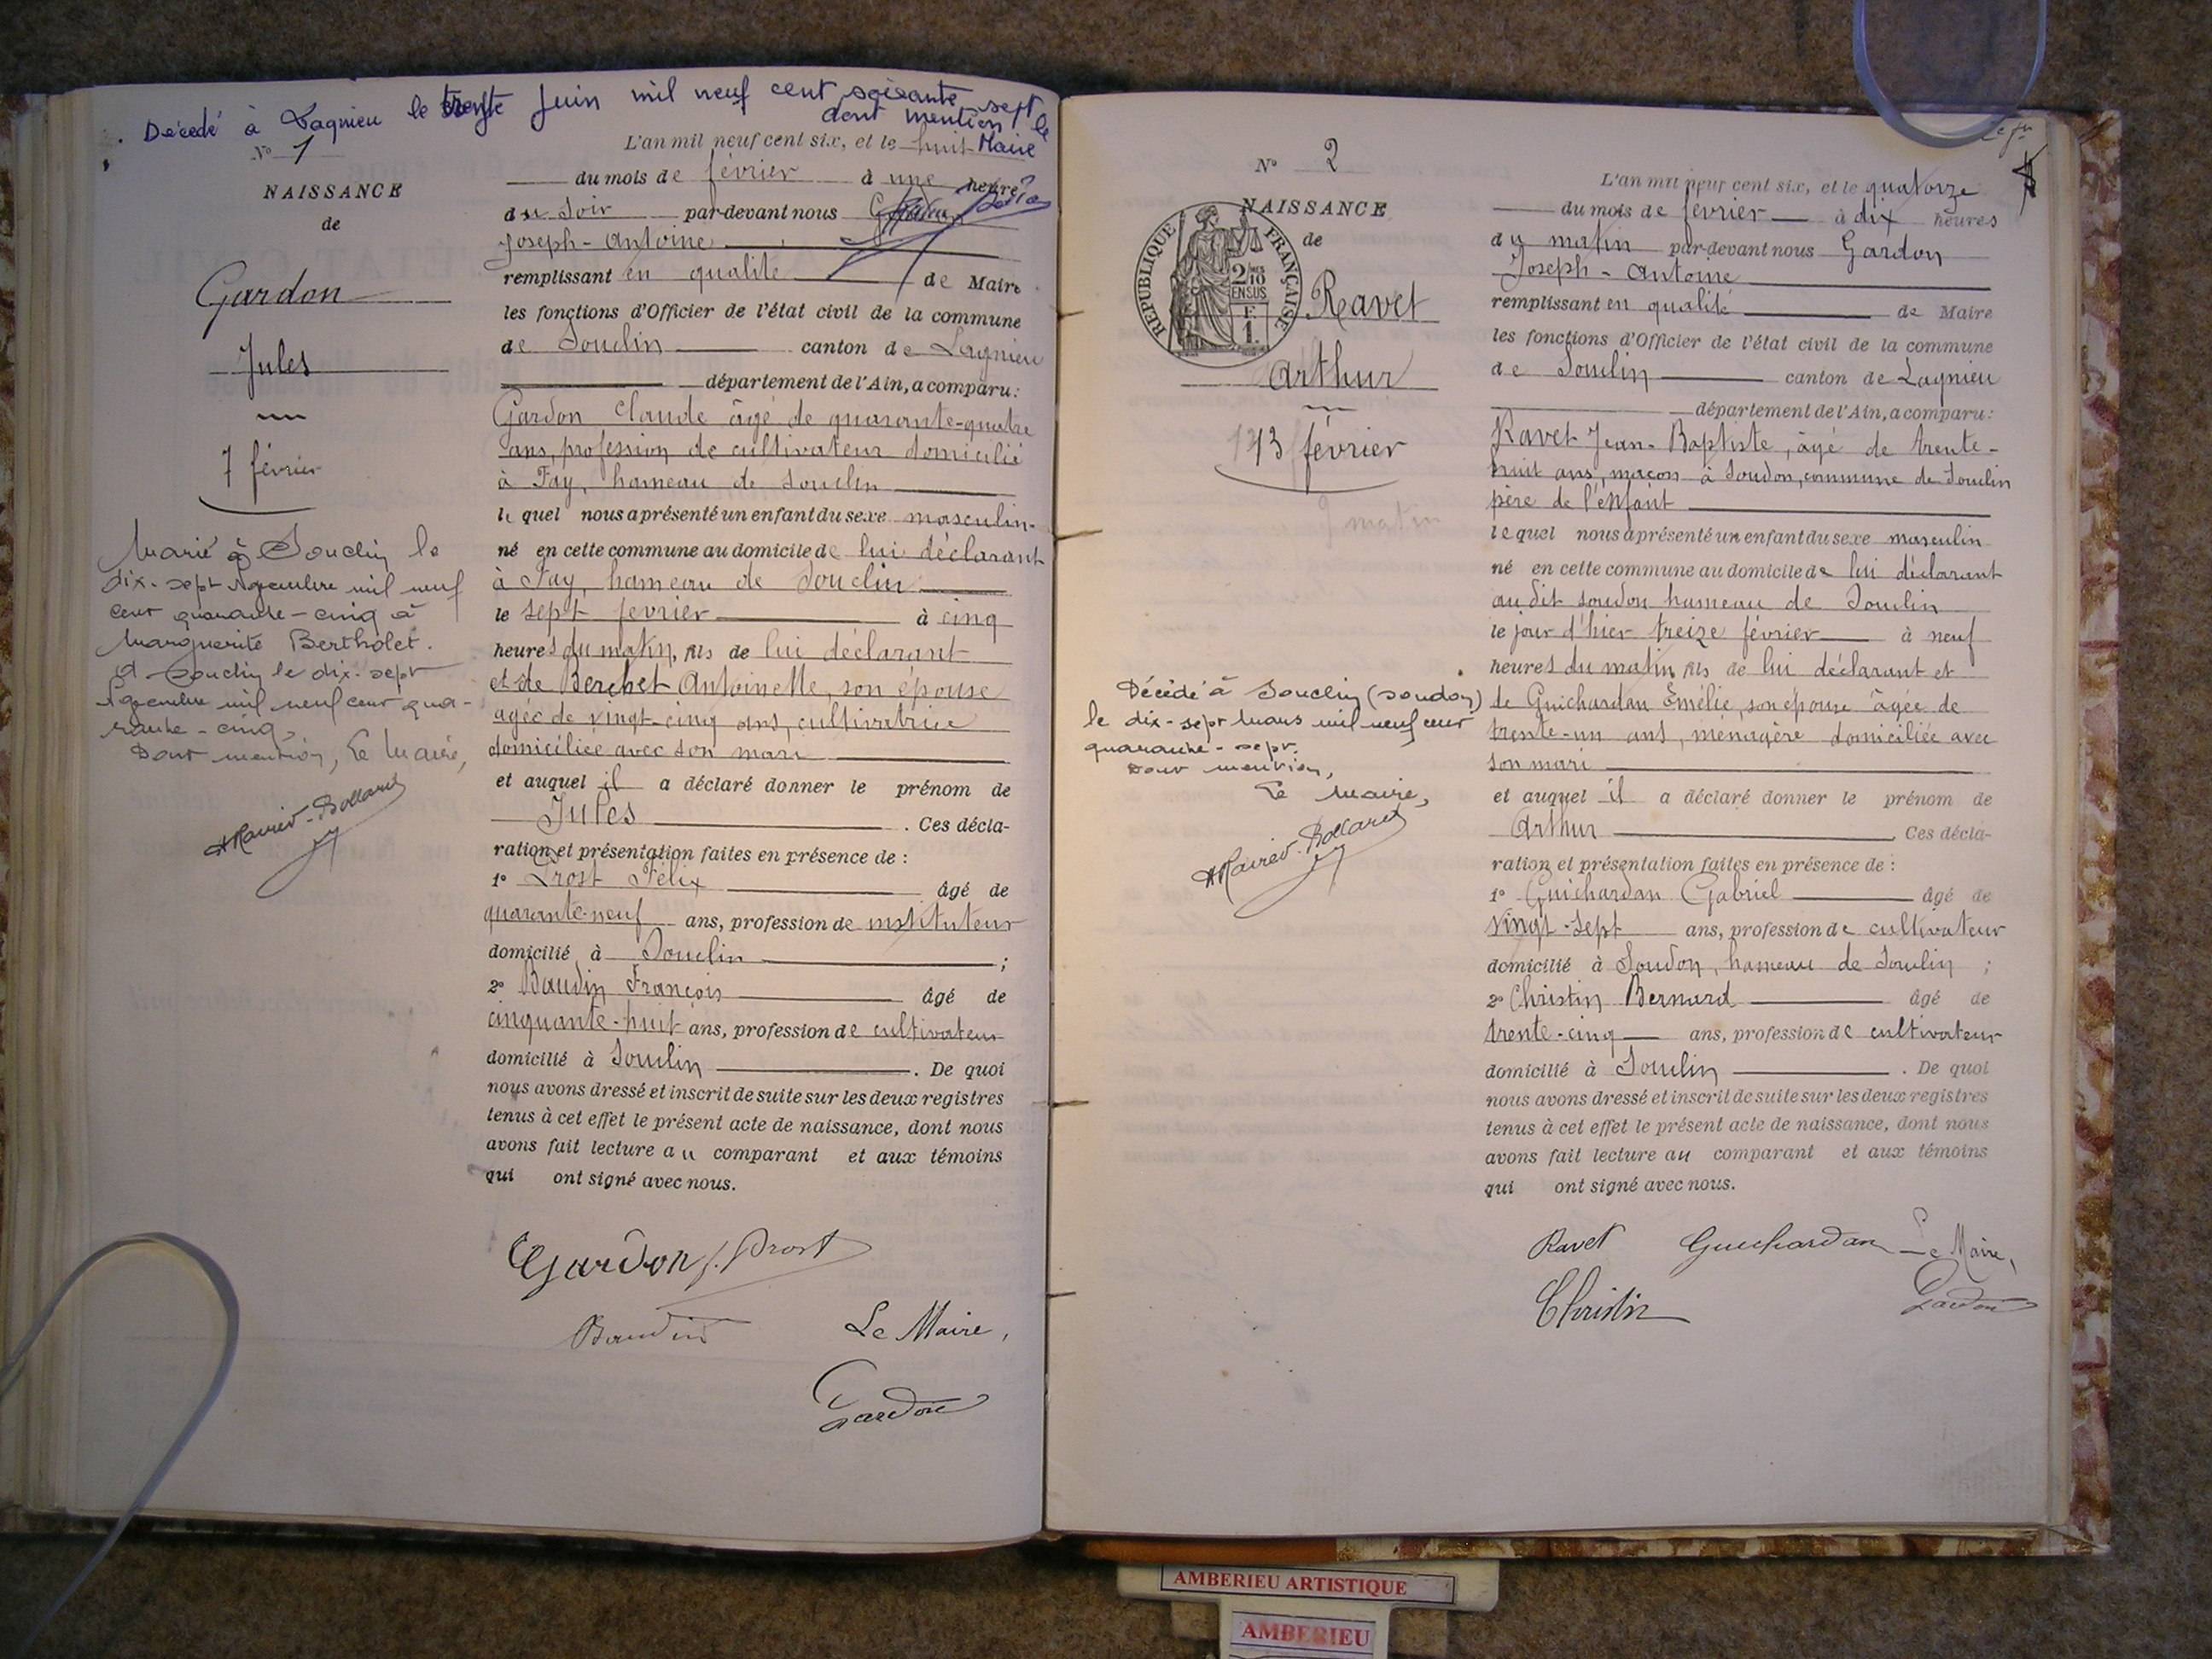 Décédé à Lagnieu le trente Juin mil neuf cent soixante sept
dont mention le
Maire
N° 1
NAISSANCE
de
Gardon
Jules
7 février
Marié à Souclin le
dix-sept Novembre mil neuf
cent quarante-cinq à
Marguerite Bertholet.
A Souclin le dix-sept
Novembre mil neuf cent qua-
rante-cinq,
Dont mention, Le Maire,
L'an mil neuf cent six, et le huit
du mois de février à une heure
du soir par-devant nous Gardon
Joseph-Antoine
remplissant en qualité de Maire
les fonctions d'Officier de l'état civil de la commune
de Souclin canton de Lagnieu
département de l'Ain, a comparu:
Gardon Claude âgé de quarante-quatre
ans, profession de cultivateur domicilié
à Fay, hameau de Souclin
le quel nous a présenté un enfant du sexe masculin
né en cette commune au domicile de lui déclarant
à Fay, hameau de Souclin
le sept fevrier à cinq
heures du matin, fils de lui déclarant
et de Berchet Antoinette, son épouse
agée de vingt-cinq ans, cultivatrice
domiciliée avec son mari
et auquel il a déclaré donner le prénom de
Jules. Ces décla-
ration et présentation faites en présence de :
1° Prost Félix âgé de
quarante-neuf ans, profession de instituteur
domicilié à Souclin ;
2° Baudin François âgé de
cinquante-huit ans, profession de cultivateur
domicilié à Souclin. De quoi
nous avons dressé et inscrit de suite sur les deux registres
tenus à cet effet le présent acte de naissance, dont nous
avons fait lecture au comparant et aux témoins
qui ont signé avec nous.
Gardon f. Prost
Baudin Le Maire,
Gardon
N° 2
NAISSANCE
de
REPUBLIQUE FRANÇAISE
2/10
EN SUS
1 F.
Ravet
Arthur
13 février
Décédé à Souclin (Soudon)
le dix-sept Mars mil neuf cent
quarante-sept.
Dont mention,
Le Maire,
L'an mil neuf cent six, et le quatorze
du mois de février à dix heures
du matin par-devant nous Gardon
Joseph-Antoine
remplissant en qualité de Maire
les fonctions d'Officier de l'état civil de la commune
de Souclin canton de Lagnieu
département de l'Ain, a comparu:
Ravet Jean-Baptiste, âgé de trente-
huit ans, maçon à Soudon, commune de Souclin
père de l'enfant
le quel nous a présenté un enfant du sexe masculin
né en cette commune au domicile de lui déclarant
au dit Soudon hameau de Souclin
le jour d'hier treize février à neuf
heures du matin fils de lui déclarant et
de Guichardan Émélie, son épouse âgée de
trente-un ans, ménagère domiciliée avec
son mari
et auquel il a déclaré donner le prénom de
Arthur. Ces décla-
ration et présentation faites en présence de :
1° Guichardan Gabriel âgé de
vingt-sept ans, profession de cultivateur
domicilié à Soudon, hameau de Souclin ;
2° Christin Bernard âgé de
trente-cinq ans, profession de cultivateur
domicilié à Souclin. De quoi
nous avons dressé et inscrit de suite sur les deux registres
tenus à cet effet le présent acte de naissance, dont nous
avons fait lecture au comparant et aux témoins
qui ont signé avec nous.
Ravet Guichardan Le Maire,
Christin Gardon
AMBERIEU ARTISTIQUE
AMBERIEU